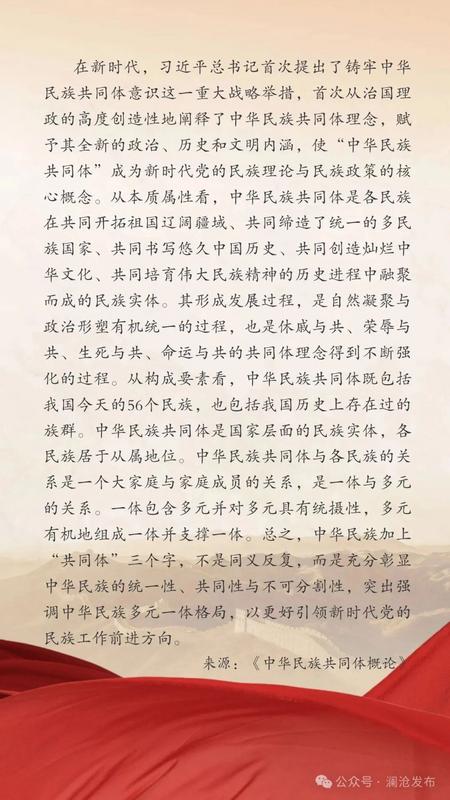 在新时代，习近平总书记首次提出了铸牢中华
民族共同体意识这一重大战略举措，首次从治国理
政的高度创造性地阐释了中华民族共同体理念，赋
予其全新的政治、历史和文明内涵，使“中华民族
共同体”成为新时代党的民族理论与民族政策的核
心概念。从本质属性看，中华民族共同体是各民族
在共同开拓祖国辽阔疆域、共同缔造了统一的多民
族国家、共同书写悠久中国历史、共同创造灿烂中
华文化、共同培育伟大民族精神的历史进程中融聚
而成的民族实体。其形成发展过程，是自然凝聚与
政治形塑有机统一的过程，也是休戚与共、荣辱与
共、生死与共、命运与共的共同体理念得到不断强
化的过程。从构成要素看，中华民族共同体既包括
我国今天的56个民族，也包括我国历史上存在过的
族群。中华民族共同体是国家层面的民族实体，各
民族居于从属地位。中华民族共同体与各民族的关
系是一个大家庭与家庭成员的关系，是一体与多元
的关系。一体包含多元并对多元具有统摄性，多元
有机地组成一体并支撑一体。总之，中华民族加上
“共同体”三个字，不是同义反复，而是充分彰显
中华民族的统一性、共同性与不可分割性，突出强
调中华民族多元一体格局，以更好引领新时代党的
民族工作前进方向。
来源：《中华民族共同体概论》
公众号·澜沧发布